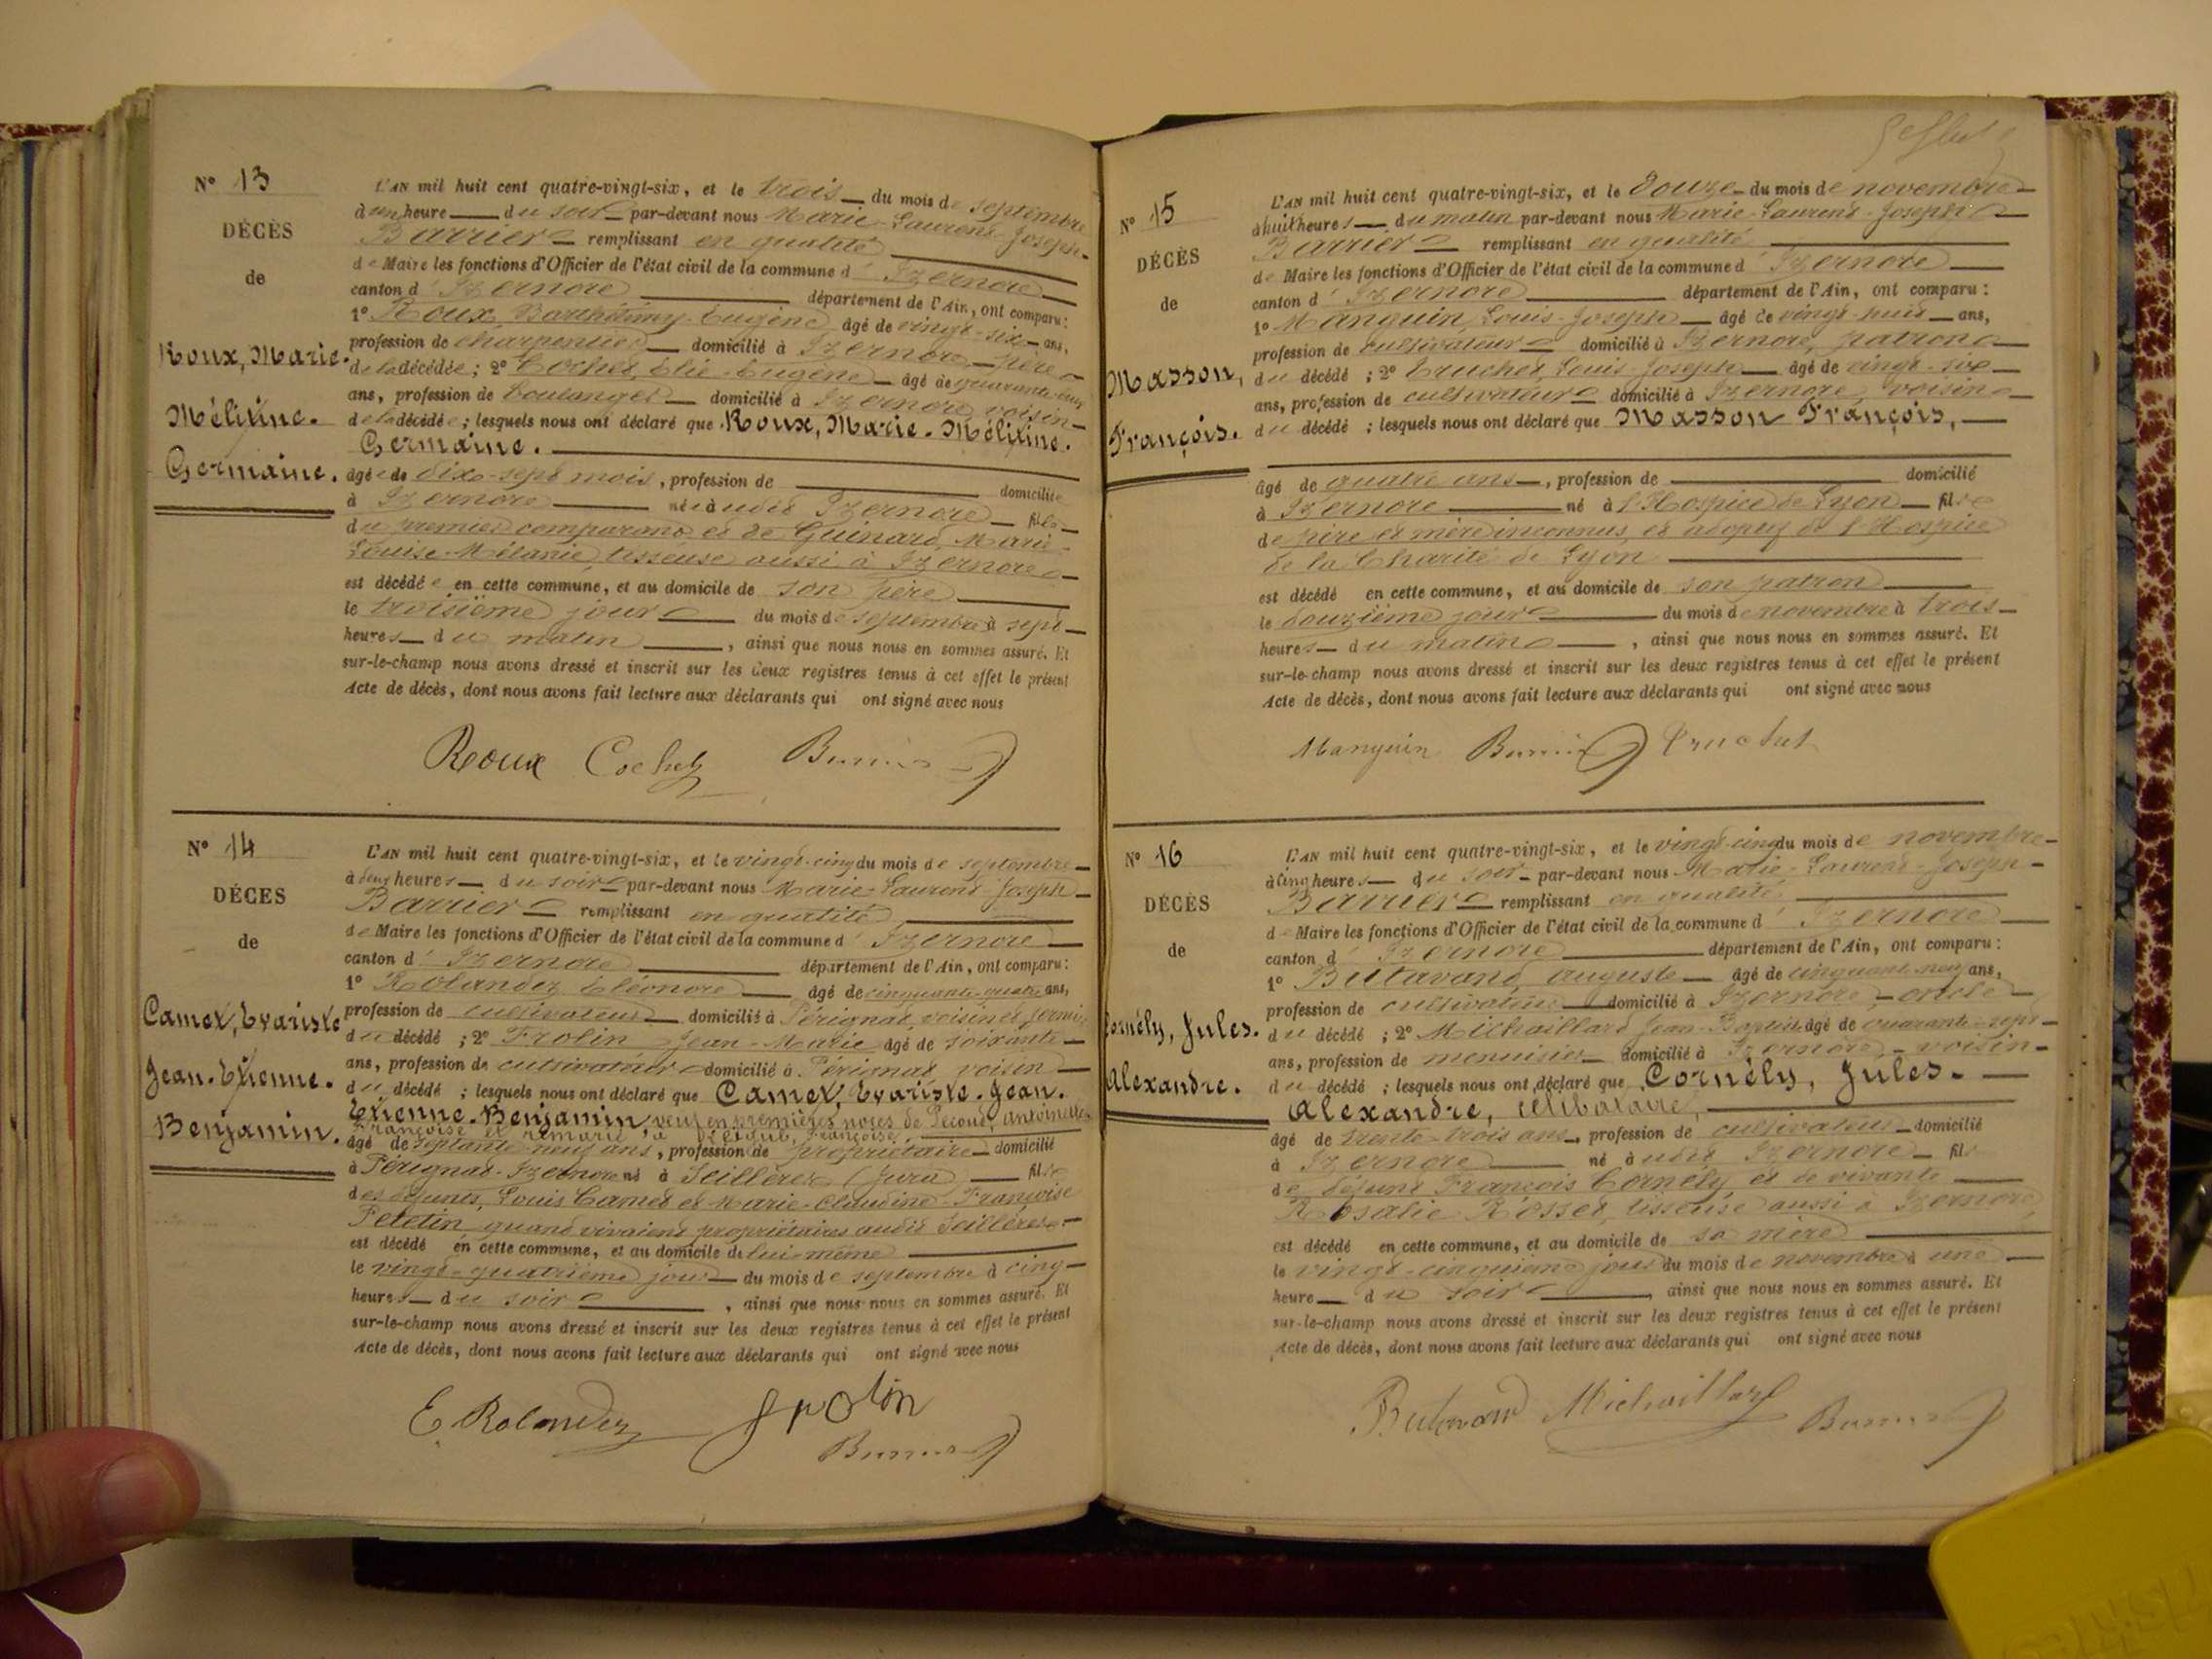 N° 13
DÉCÈS
de
Roux, Marie.
Mélitine.
Germaine.
L'AN mil huit cent quatre-vingt-six, et le trois du mois de septembre
à un heure du soir par-devant nous Marie-Laurent-Joseph-
Barrier remplissant en qualité
de Maire les fonctions d'Officier de l'état civil de la commune d'Izernore
canton d'Izernore département de l'Ain, ont comparu:
1° Roux, Barthélimy-Eugène âgé de vingt-six ans,
profession de charpentier domicilié à Izernore père
de la décédée; 2° Cochet, Elie-Eugène âgé de quarante-
ans, profession de boulanger domicilié à Izernore voisin
de la décédée; lesquels nous ont déclaré que Roux, Marie-Mélitine.
Germaine.
âgée de dix-sept mois, profession de domicilié
à Izernore née audit Izernore fille
du premier comparant et de Guinard, Marie-
Louise-Mélanie, tisseuse aussi à Izernore
est décédée en cette commune, et au domicile de son père
le troisième jour du mois de septembre à sept
heures du matin, ainsi que nous nous en sommes assuré. Et
sur-le-champ nous avons dressé et inscrit sur les deux registres tenus à cet effet le présent
Acte de décès, dont nous avons fait lecture aux déclarants qui ont signé avec nous
Roux Cochet Barrier
N° 14
DÉCES
de
Camet, Evariste
Jean-Etienne.
Benjamin.
L'AN mil huit cent quatre-vingt-six, et le vingt-cinq du mois de septembre
à deux heures du soir par-devant nous Marie-Laurent-Joseph
Barrier remplissant en qualité
de Maire les fonctions d'Officier de l'état civil de la commune d'Izernore
canton d'Izernore département de l'Ain, ont comparu:
1° Rolandez Eléonore âgé de cinquante-quatre ans,
profession de cultivateur domicilié à Pérignat, voisin
du décédé; 2° Frolin Jean-Marie âgé de soixante
ans, profession de cultivateur domicilié à Pérignat voisin
du décédé; lesquels nous ont déclaré que Camet, Evariste-Jean.
Etienne-Benjamin veuf en premières noces de Pecoud, Antoinette
Françoise et remarié à Françoise
âgé de septante-neuf ans, profession de propriétaire domicilié
à Pérignat-Izernore né à Seillères (Jura) fils
des défunts, Louis Camet et Marie-Claudine-Françoise
Petetin quand vivaient propriétaires audit Seillères
est décédé en cette commune, et au domicile de lui-même
le vingt-quatrième jour du mois de septembre à cinq
heures du soir, ainsi que nous nous en sommes assuré. Et
sur-le-champ nous avons dressé et inscrit sur les deux registres tenus à cet effet le présent
Acte de décès, dont nous avons fait lecture aux déclarants qui ont signé avec nous
E Rolandez frolin
Barrier
N° 15
DÉCÈS
de
Masson,
François.
L'AN mil huit cent quatre-vingt-six, et le douze du mois de novembre
à huit heures du matin par-devant nous Marie-Laurent-Joseph
Barrier remplissant en qualité
de Maire les fonctions d'Officier de l'état civil de la commune d'Izernore
canton d'Izernore département de l'Ain, ont comparu:
1° Manguin, Louis-Joseph âgé de vingt-huit ans,
profession de cultivateur domicilié à Izernore, patron
du décédé; 2° Truchet, Louis-Joseph âgé de vingt-six
ans, profession de cultivateur domicilié à Izernore, voisin
du décédé; lesquels nous ont déclaré que Masson François,
âgé de quatre ans, profession de domicilié
à Izernore né à l'Hospice de Lyon fils
de père et mère inconnus, et adoptif de l'Hospice
de la Charité de Lyon
est décédé en cette commune, et au domicile de son patron
le douzième jour du mois de novembre à trois
heures du matin, ainsi que nous nous en sommes assuré. Et
sur-le-champ nous avons dressé et inscrit sur les deux registres tenus à cet effet le présent
Acte de décès, dont nous avons fait lecture aux déclarants qui ont signé avec nous
Manguin Barrier Truchet
N° 16
DÉCÈS
de
Cornély, Jules.
Alexandre.
L'AN mil huit cent quatre-vingt-six, et le vingt-cinq du mois de novembre
à cinq heures du soir par-devant nous Marie-Laurent-Joseph
Barrier remplissant en qualité
de Maire les fonctions d'Officier de l'état civil de la commune d'Izernore
canton d'Izernore département de l'Ain, ont comparu:
1° Butavand, auguste âgé de cinquant-neuf ans,
profession de cultivateur domicilié à Izernore, oncle
du décédé; 2° Michaillard Jean-Baptist âgé de quarante-sept
ans, profession de menuisier domicilié à Izernore, voisin
du décédé; lesquels nous ont déclaré que Cornély, Jules.
Alexandre, célibataire,
âgé de trente-trois ans, profession de cultivateur domicilié
à Izernore né audit Izernore fils
de défunt François Cornély et de vivante
Rosalie Rosset, tisseuse aussi à Izernore,
est décédé en cette commune, et au domicile de sa mère
le vingt-cinquième jour du mois de novembre à une
heure du soir, ainsi que nous nous en sommes assuré. Et
sur-le-champ nous avons dressé et inscrit sur les deux registres tenus à cet effet le présent
Acte de décès, dont nous avons fait lecture aux déclarants qui ont signé avec nous
Butavand Michaillard Barrier